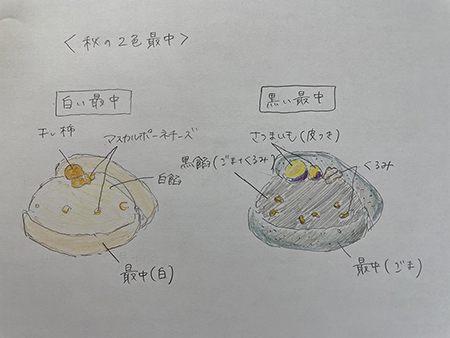 ＜秋の2色最中＞
白い最中
干し柿
マスカルポーネチーズ
白餡
最中(白)
黒い最中
さつまいも(皮つき)
黒餡(ごま+くるみ)
くるみ
最中(ごま)